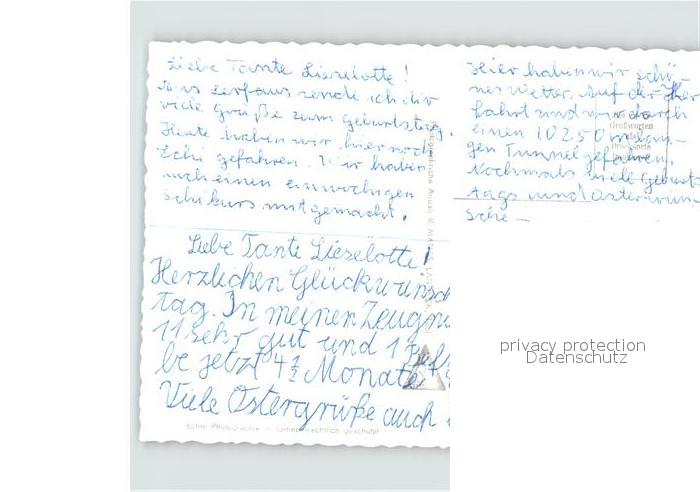 Liebe Tante Lieselotte!
Aus Serfaus sende ich dir
viele Grüße zum Geburtstag.
Heute haben wir hier noch
gefahren. Wir haben
auch einen einwöchigen
Schikurs mitgemacht.
Hier haben wir schö-
nes Wetter. Auf der Hier
fahrt sind wir durch
einen 10250 m lan-
gen Tunnel gefahren.
Nochmals viele Geburts-
tags und Osterwün-
sche –
Liebe Tante Lieselotte!
Herzlichen Glückwunsch
tag. In meinen Zeugn
11 sehr gut und 1
be jetzt 4½ Monate
Viele Ostergrüße auch
Echte Photographie - Urheberrechtlich geschützt
privacy protection
Datenschutz